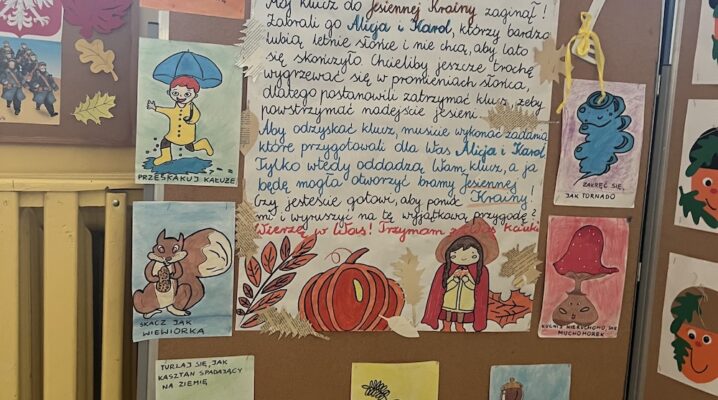 Mój klucz do Jesiennej Krainy zaginął!
Zabrali go Alicja i Karol, którzy bardzo
lubią letnie słońce i nie chcą, aby lato
się skończyło. Chcieliby jeszcze trochę
wygrzewać się w promieniach słońca,
dlatego postanowili zatrzymać klucz, żeby
powstrzymać nadejście jesieni.
Aby odzyskać klucz, musicie wykonać zadania
które przygotowali dla Was Alicja i Karol
Tylko wtedy oddadzą Wam klucz, a ja
będę mogła otworzyć bramy Jesiennej
Czy jesteście gotowi, aby pomóc Krainy!
mi i wyruszyć na tę wyjątkową przygodę?
Wierzę w Was! Trzymam za Was kciuki
PRZESKAKUJ KAŁUŻE
SKACZ JAK
WIEWIÓRKA
TURLAJ SIĘ, JAK
KASZTAN SPADAJĄCY
NA ZIEMIĘ
ZAKRĘĆ SIĘ,
JAK TORNADO
KUCNIJ NIERUCHOMO, JAK
MUCHOMOREK